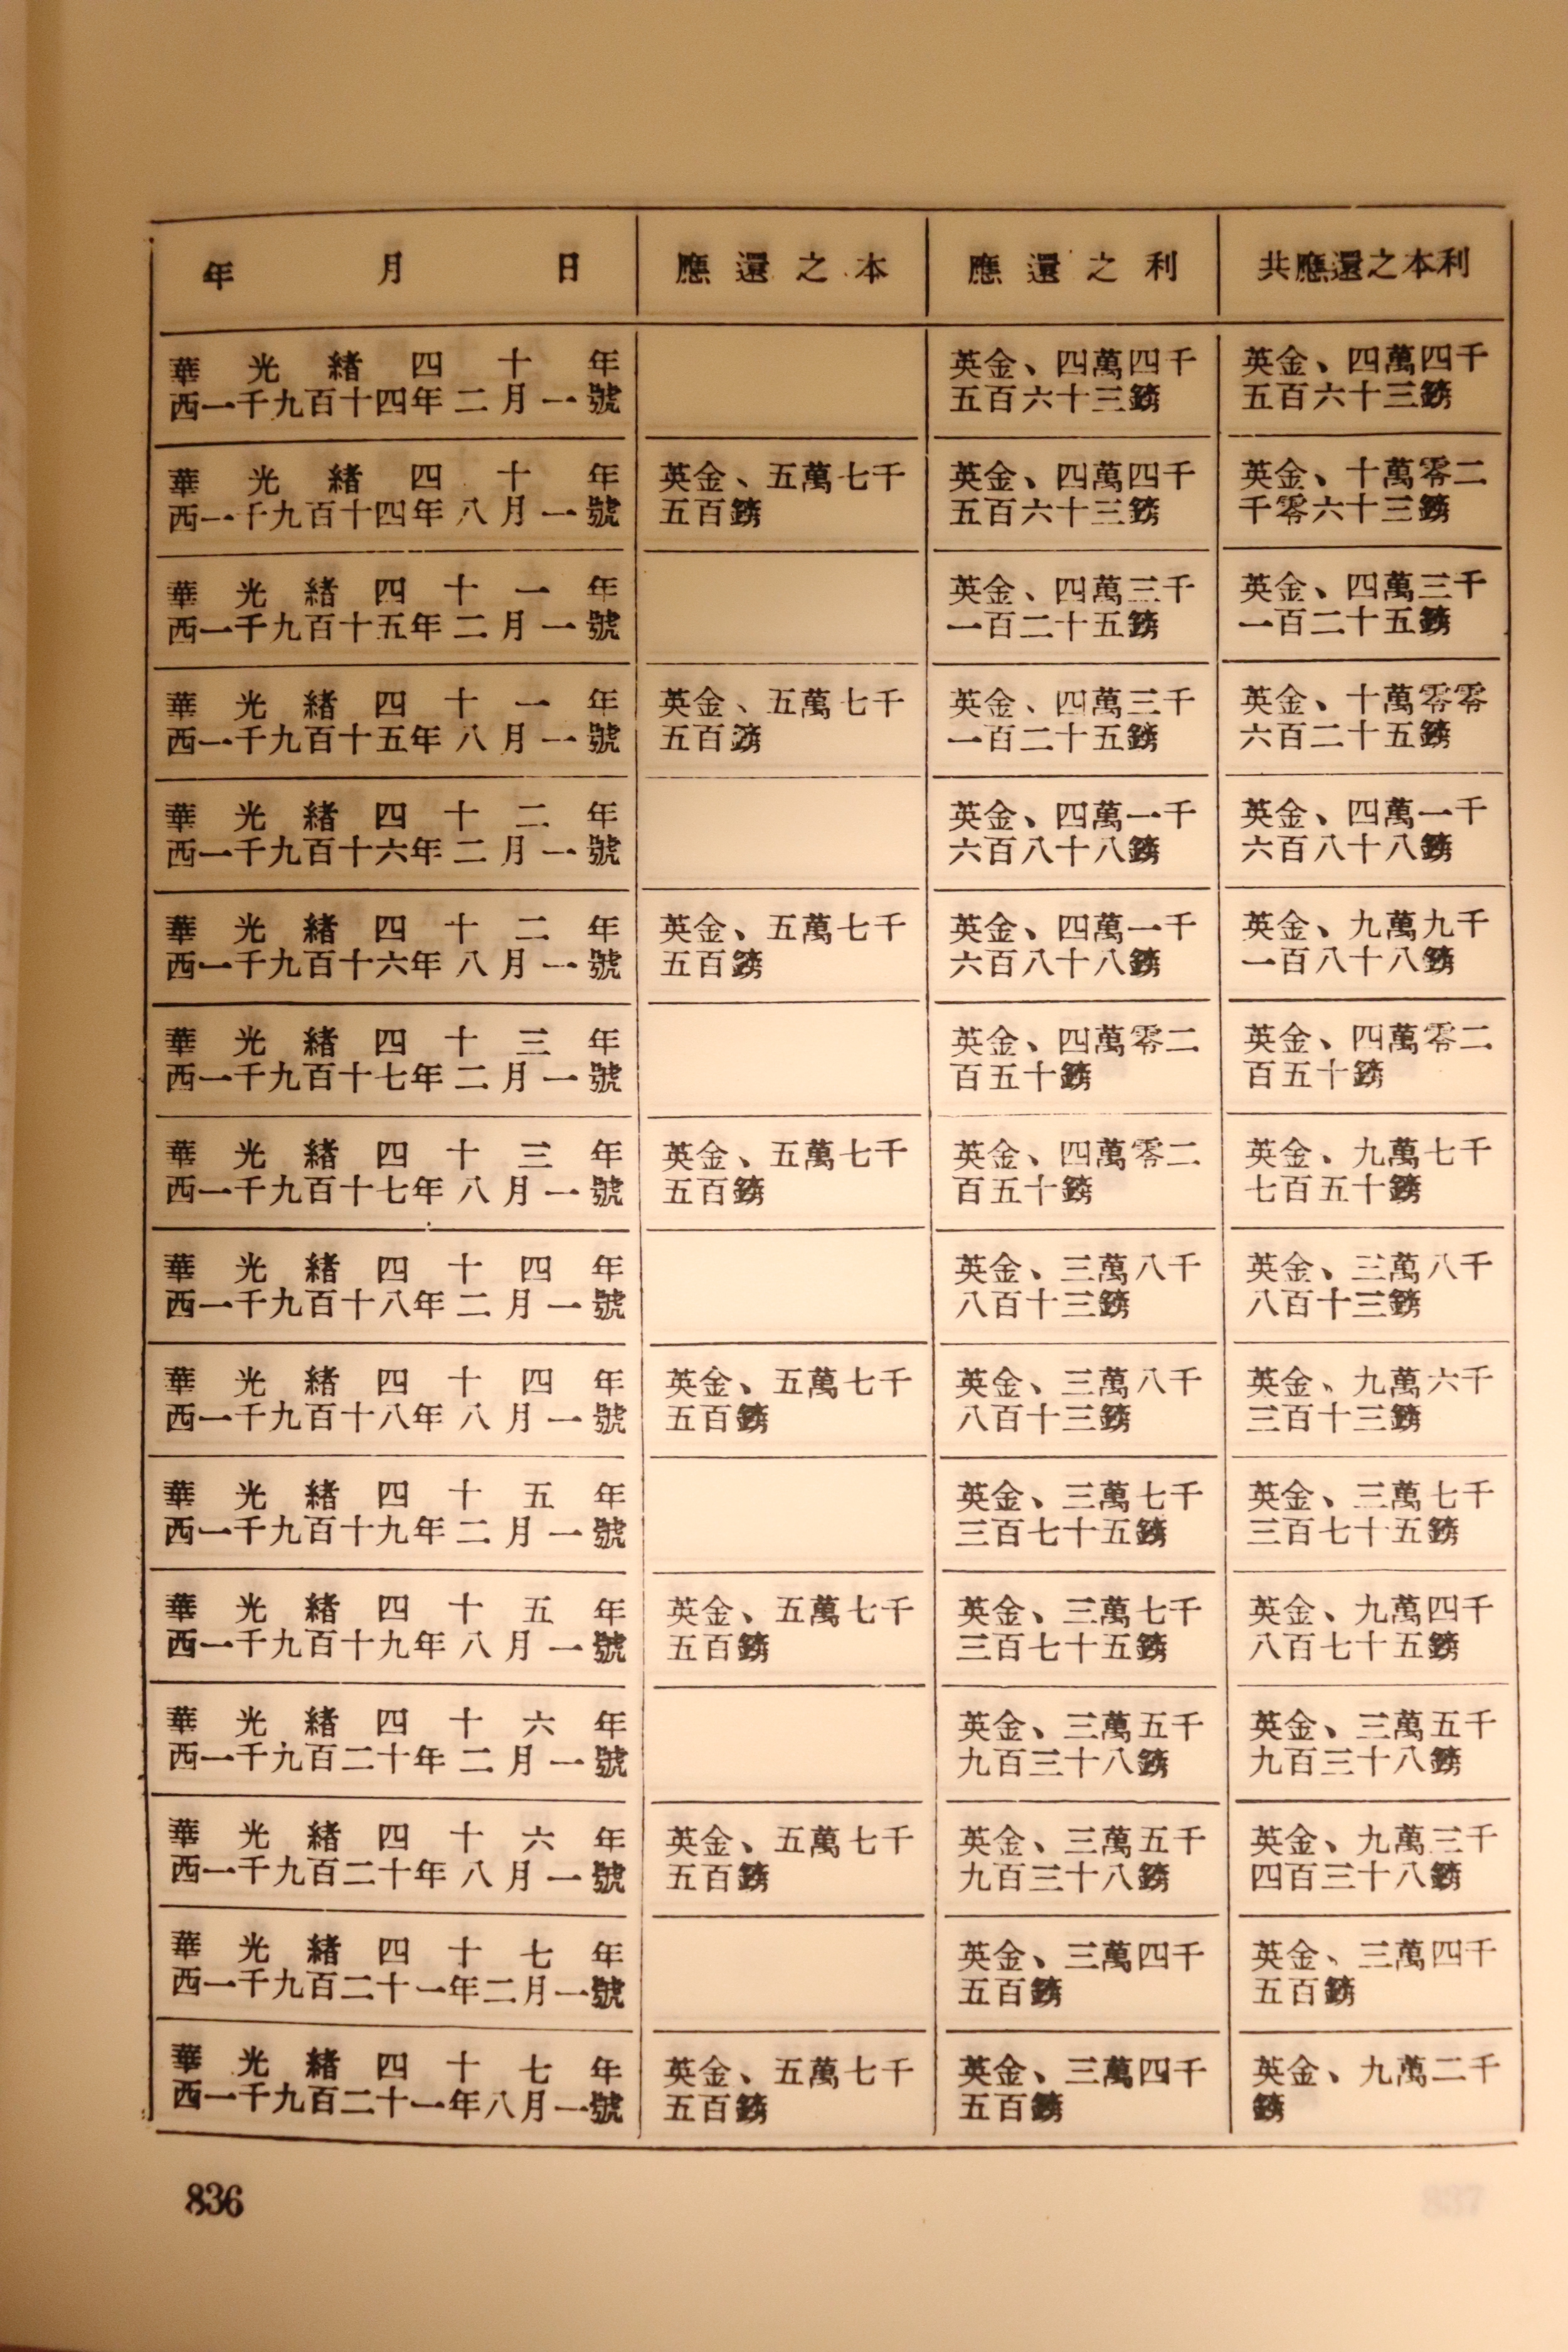 年 月 日 應還之本 應還之利 共應還之本利
華光緒四十年 英金、四萬四千 英金、四萬四千
西一千九百十四年二月一號 五百六十三鎊 五百六十三鎊
華光緒四十年 英金、五萬七千 英金、四萬四千 英金、十萬零二
西一千九百十四年八月一號 五百鎊 五百六十三鎊 千零六十三鎊
華光緒四十一年 英金、四萬三千 英金、四萬三千
西一千九百十五年二月一號 一百二十五鎊 一百二十五鎊
華光緒四十一年 英金、五萬七千 英金、四萬三千 英金、十萬零零
西一千九百十五年八月一號 五百鎊 一百二十五鎊 六百二十五鎊
華光緒四十二年 英金、四萬一千 英金、四萬一千
西一千九百十六年二月一號 六百八十八鎊 六百八十八鎊
華光緒四十二年 英金、五萬七千 英金、四萬一千 英金、九萬九千
西一千九百十六年八月一號 五百鎊 六百八十八鎊 一百八十八鎊
華光緒四十三年 英金、四萬零二 英金、四萬零二
西一千九百十七年二月一號 百五十鎊 百五十鎊
華光緒四十三年 英金、五萬七千 英金、四萬零二 英金、九萬七千
西一千九百十七年八月一號 五百鎊 百五十鎊 七百五十鎊
華光緒四十四年 英金、三萬八千 英金、三萬八千
西一千九百十八年二月一號 八百十三鎊 八百十三鎊
華光緒四十四年 英金、五萬七千 英金、三萬八千 英金、九萬六千
西一千九百十八年八月一號 五百鎊 八百十三鎊 三百十三鎊
華光緒四十五年 英金、三萬七千 英金、三萬七千
西一千九百十九年二月一號 三百七十五鎊 三百七十五鎊
華光緒四十五年 英金、五萬七千 英金、三萬七千 英金、九萬四千
西一千九百十九年八月一號 五百鎊 三百七十五鎊 八百七十五鎊
華光緒四十六年 英金、三萬五千 英金、三萬五千
西一千九百二十年二月一號 九百三十八鎊 九百三十八鎊
華光緒四十六年 英金、五萬七千 英金、三萬五千 英金、九萬三千
西一千九百二十年八月一號 五百鎊 九百三十八鎊 四百三十八鎊
華光緒四十七年 英金、三萬四千 英金、三萬四千
西一千九百二十一年二月一號 五百鎊 五百鎊
華光緒四十七年 英金、五萬七千 英金、三萬四千 英金、九萬二千
西一千九百二十一年八月一號 五百鎊 五百鎊 鎊
836
837